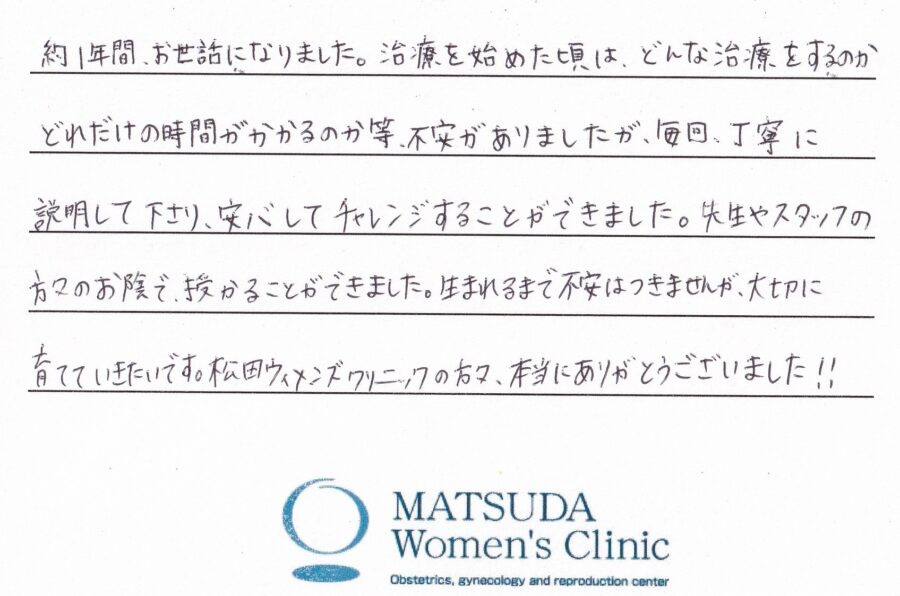 約1年間、お世話になりました。治療を始めた頃は、どんな治療をするのか
どれだけの時間がかかるのか等、不安がありましたが、毎回、丁寧に
説明して下さり、安心してチャレンジすることができました。先生やスタッフの
方々のお陰で、授かることができました。生まれるまで不安はつきませんが、大切に
育てていきたいです。松田ウィメンズクリニックの方々、本当にありがとうございました!!
MATSUDA
Women's Clinic
Obstetrics, gynecology and reproduction center